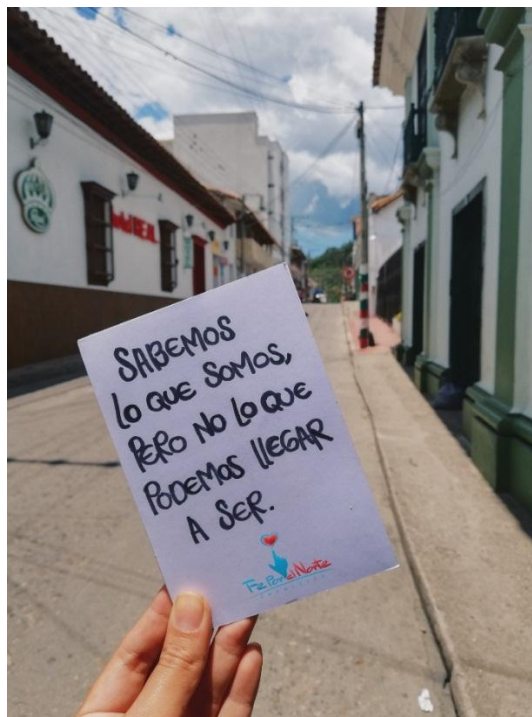 SABEMOS
LO QUE SOMOS,
PERO NO LO QUE
PODEMOS LLEGAR
A SER.
Fe Por el Norte